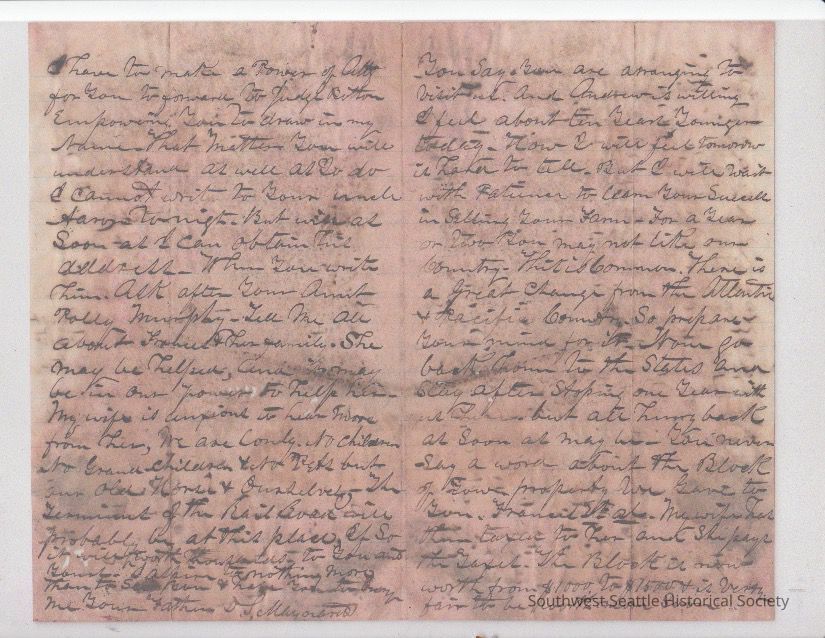 I have to make a Power of Atty
for You to forward to Judge
Empowering You to draw in my
Name. That Matter You will
understand as well as I do
I cannot write to Your uncle
Aaron to night. But will as
Soon as I can obtain his
address. When You write
him. Ask after Your Aunt
Polly Murphy. Tell Me All
about Her family. She
may be helped, and
be in our power to help her
My wife is anxious to hear more
from her, We are Lonely. No children
No Grand children & No Pets but
our Old Horse & Ourselves. The
Terminus of the Rail Road will
probably be at this place, If So
it will be worth thousands to You and
Yours. nothing more
than to
me Your Father D. S. Maynard
You Say You are arranging to
Visit us. And Andrew is willing
I feel about ten Years Younger
today. How I will feel tomorrow
is hard to tell. But I will Wait
with Patience to learn Your Success
in Selling Your Farm. For a Year
or two You may not like our
Country. This is Common. There is
a Great Change from the Atlantic
& Pacific Country. So prepare
Your mind for it. Some go
back home to the States and
Stay after Stoping one Year with
us but all hurry back
as Soon as may be. You never
Say a word about the Block
of Town property We Gave to
You. My wife has
the taxes to and She pays
the taxes. The Block is now
worth from $1000 to $1500 & is Very
fair to be
Southwest Seattle Historical Society